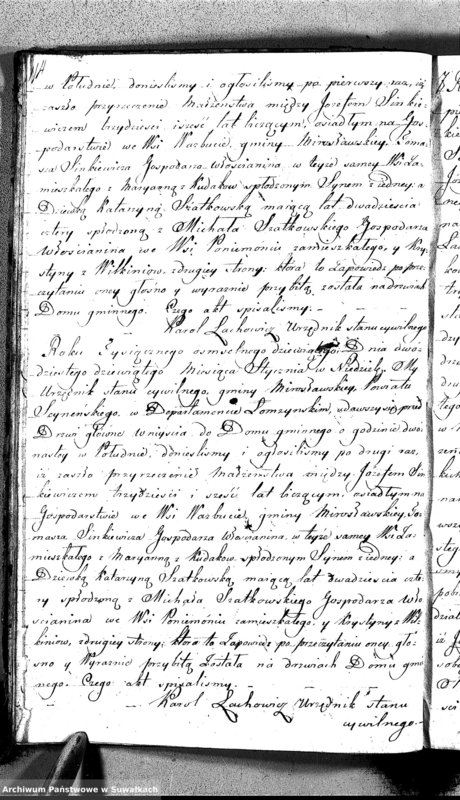 14
w Południe, donieslismy i ogłosilismy po pierwszy raz, iż
zaszło przyrzeczenie Małżeństwa między Jozefem Sinkie-
wiczem trzydzieści i sześć lat liczącym, osiadłym na Gos-
podarstwie we Wsi Warbucie, gminy Mirosławskiey, Toma-
sza Sinkiewicza Gospodarza włościanina w teyże samey Wsi Za-
mieszkałego z Maryanną z Kudakow spłodzonym Synem z iedney; a
Dziewką Katarzyną Szatkowską maiącą lat dwadzieścia
cztery spłodzoną z Michała Szatkowskiego Gospodarza
Włościanina we Wsi Poniemoniu zamieszkałego, y Kry-
styny z Wilkiniow, z drugiey strony; ktora to Zapowiedz po prze-
czytaniu oney głośno y wyraznie przybitą została na drzwiach
Domu gminnego. Czego akt spisalismy. –
Karol Lachowicz Urzędnik stanu cywilnego
Roku Tysiącznego osmsetnego dziewiątego, Dnia dwu-
dziestego dziewiątego Miesiąca Stycznia w Niedzielę. My
Urzędnik stanu cywilnego, gminy Mirosławskiey, Powiatu
Seynenskiego, w Departamencie Łomzynskim, udawszy się przed
Drzwi głowne weniyścia do Domu gminnego o godzinie dwu-
nastey w Południe, donieslismy i ogłosilismy po drugi raz,
iż zaszło przyrzeczenie Małżeństwa między Jozefem Sin-
kiewiczem trzydzieści i sześć lat liczącym, osiadłym na
Gospodarstwie we Wsi Warbucie, gminy Mirosławskiey, To-
masza Sinkiewicza Gospodarza Włościanina, w teyże samey Wsi Za-
mieszkałego z Maryanną z Kudakow, spłodzonym Synem z iedney; a
Dziewką Katarzyną Szatkowską, maiącą lat dwadzieścia czte-
ry spłodzoną z Michała Szatkowskiego Gospodarza Wło-
ścianina we Wsi Poniemoniu zamieszkałego, y Krystyny z Wil-
kiniow, z drugiey strony; ktora to Zapowiedz po przeczytaniu oney, gło-
śno y Wyraznie przybitą Została na drzwiach Domu gmin-
nego. Czego akt spisalismy. –
Karol Lachowicz Urzędnik stanu
cywilnego. –
Archiwum Państwowe w Suwałkach